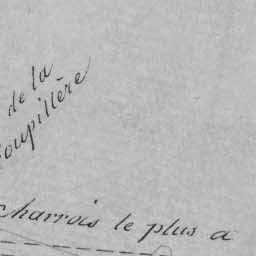 de la
oupillère
charrois le plus a